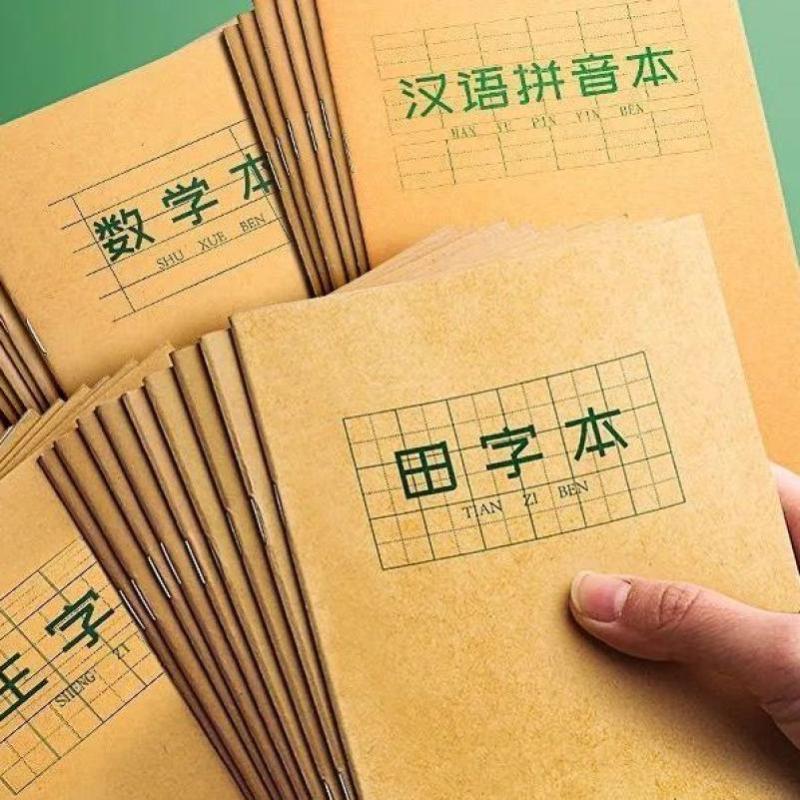 汉语拼音本
HAN YU PIN YIN BEN
数学本
SHU XUE BEN
田字本
TIAN ZI BEN
生字
SHENG ZI